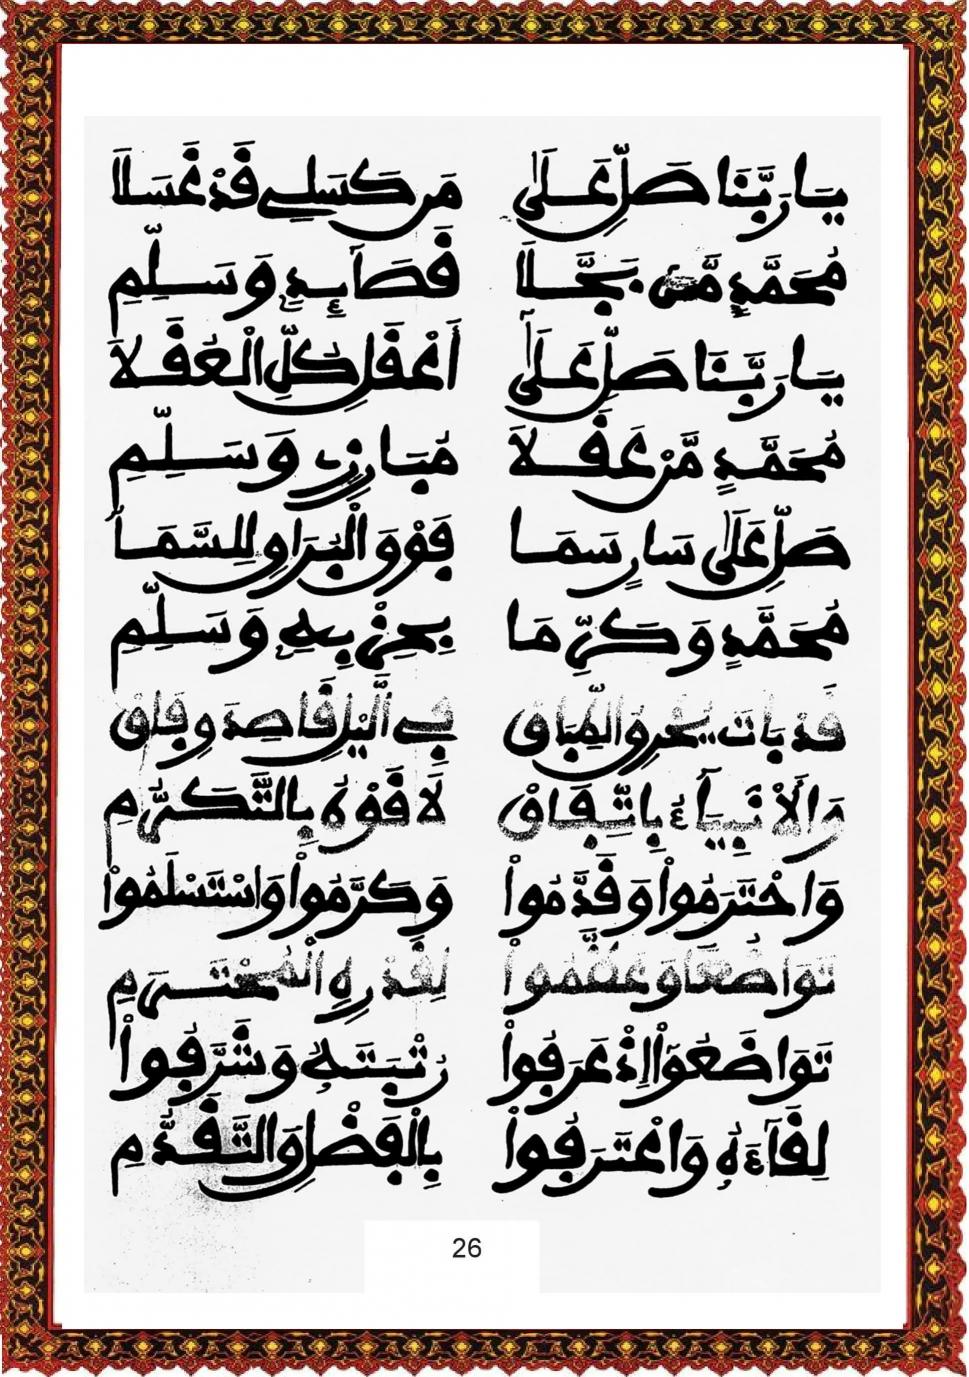 يَا رَبَّنَا صَلِّ عَلَى مَن كَسَلِي قَدْ غَسَلَا
مُحَمَّدٍ مَّنْ بَجَّلَا قَصَائِدِي وَسَلِّمِ
يَا رَبَّنَا صَلِّ عَلَى أَعْقَلِ كُلِّ الْعُقَلَا
مُحَمَّدٍ مَّنْ عَقَلَا مُبَارِزِي وَسَلِّمِ
صَلِّ عَلَى سَارٍ سَمَا فَوْقَ الْبُرَاقِ لِلسَّمَا
مُحَمَّدٍ وَكَرِّمَا بِحِزْبِهِ وَسَلِّمِ
قَدْ بَاتَ يَخْرِقُ الطِّبَاقْ فِي الَّيْلِ قَاصِدَ وِفَاقْ
وَالْأَنْبِيَاءُ بِاتِّفَاقْ لَاقَوْهُ بِالتَّكَرُّمِ
وَاحْتَرَمُواْ وَقَدَّمُواْ وَكَرَّمُواْ وَاسْتَسْلَمُواْ
تَوَاضُعًا وَعَظَّمُواْ لِقَدْرِهِ الْمُحْتَرَمِ
تَوَاضَعُواْ إِذْ عَرَفُواْ رُتْبَتَهُ وَشَرَّفُواْ
لِقَاءَهُ وَاعْتَرَفُواْ بِالْفَضْلِ وَالتَّقَدُّمِ
26